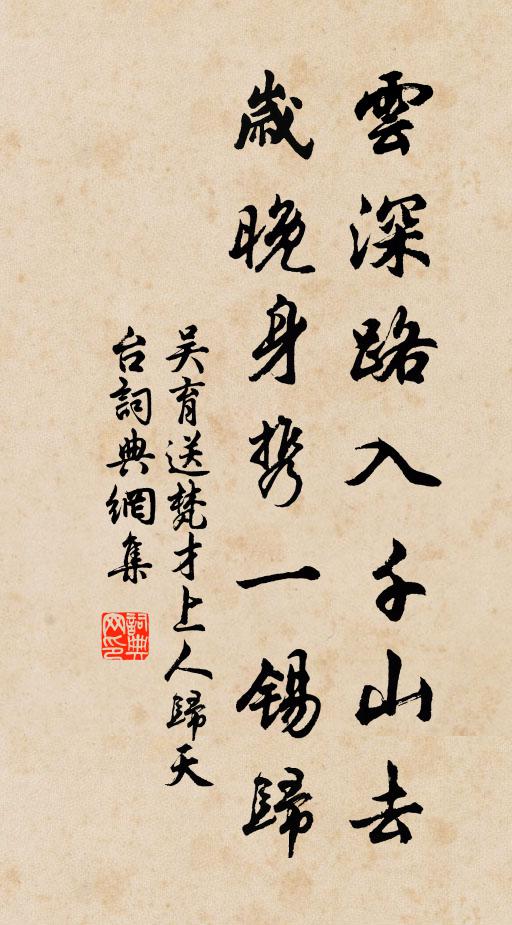 雲深路入千山去
歲晚身携一錫歸
吴育送梵才上人歸天
台詞典網集
詞典
网印